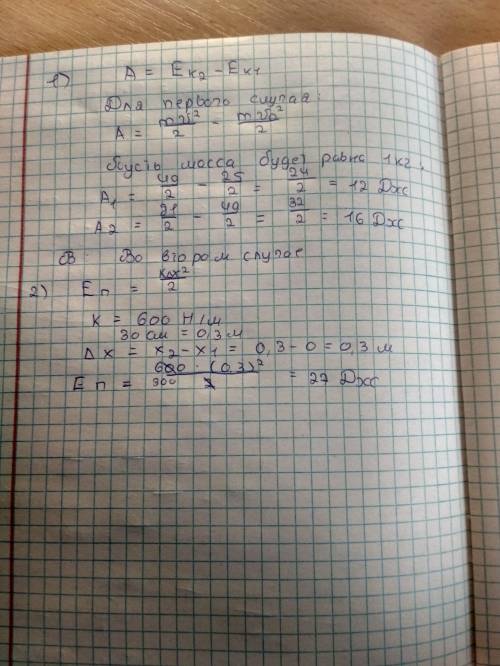 1) A = Eк2 - Eк1
Для первого случая:
A = mV²/2 - mV₀²/2
Пусть масса будет равна 1 кг.
A₁ = 49/2 - 25/2 = 24/2 = 12 Дж
A₂ = 81/2 - 49/2 = 32/2 = 16 Дж
Во втором случае
2) Eп = кΔx²/2
К = 600 Н/м
30 см = 0,3 м
Δx = x₂ - x₁ = 0,3 - 0 = 0,3 м
Eп = 600 · (0,3)²/2 = 27 Дж
300